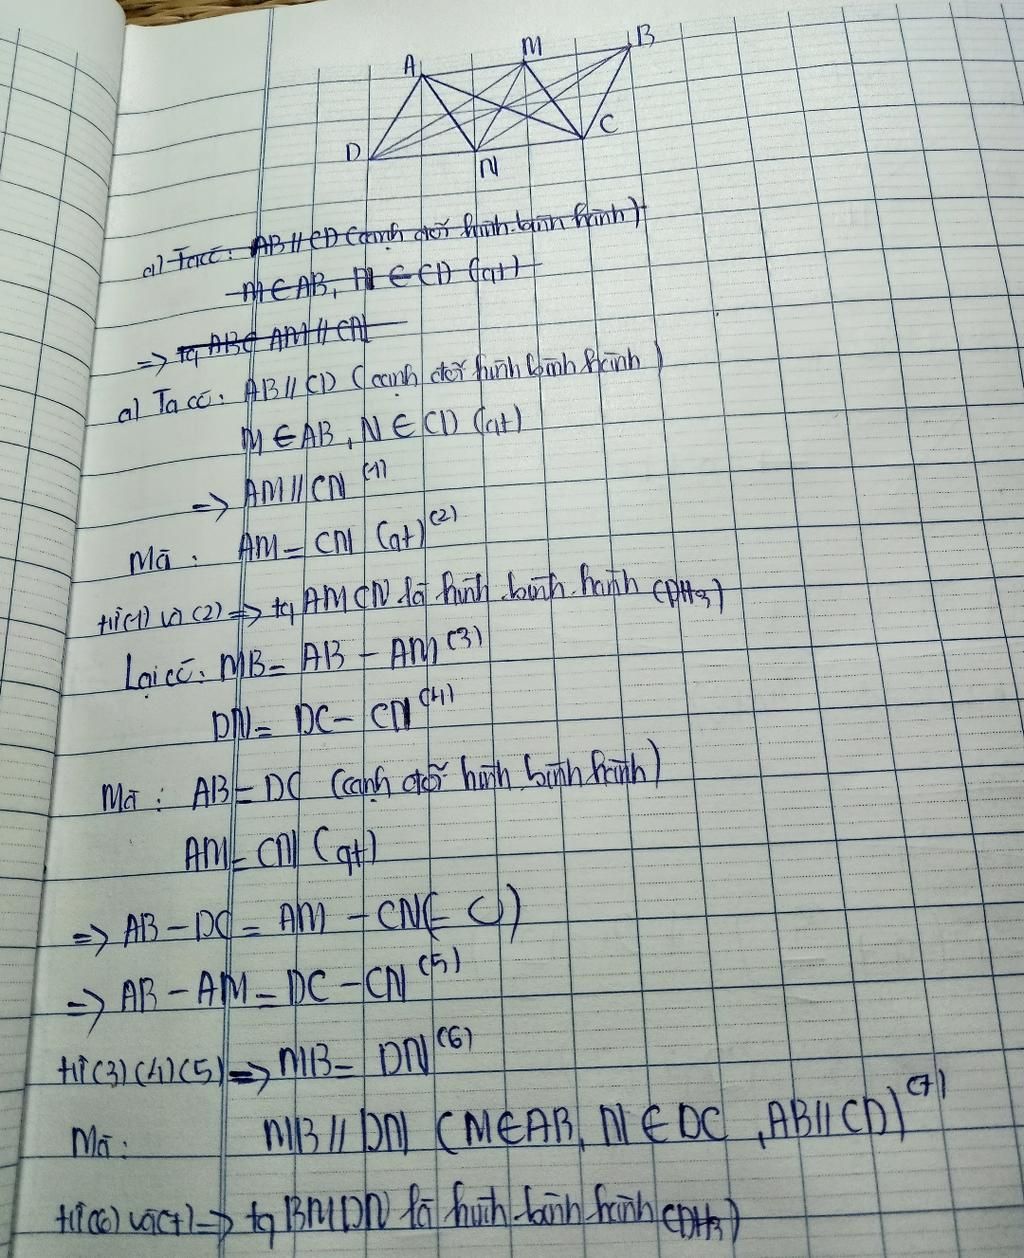 A M B
D N C
a) Ta có: AB // CD (cạnh đối hình bình hành)
M ∈ AB, N ∈ CD (gt)
=> tg ABC AM // CN
a) Ta có: AB // CD (cạnh đối hình bình hành)
M ∈ AB, N ∈ CD (gt)
=> AM // CN (1)
Mà: AM = CN (gt) (2)
từ (1) và (2) => tg AMCN là hình bình hành (DH3)
Lại có: MB = AB - AM (3)
DN = DC - CN (4)
Mà: AB = DC (cạnh đối hình bình hành)
AM = CN (gt)
=> AB - DC = AM - CN (= 0)
=> AB - AM = DC - CN (5)
từ (3) (4) (5) => MB = DN (6)
Mà: MB // DN (M ∈ AB, N ∈ DC, AB // CD) (7)
từ (6) và (7) => tg BMDN là hình bình hành (DH3)